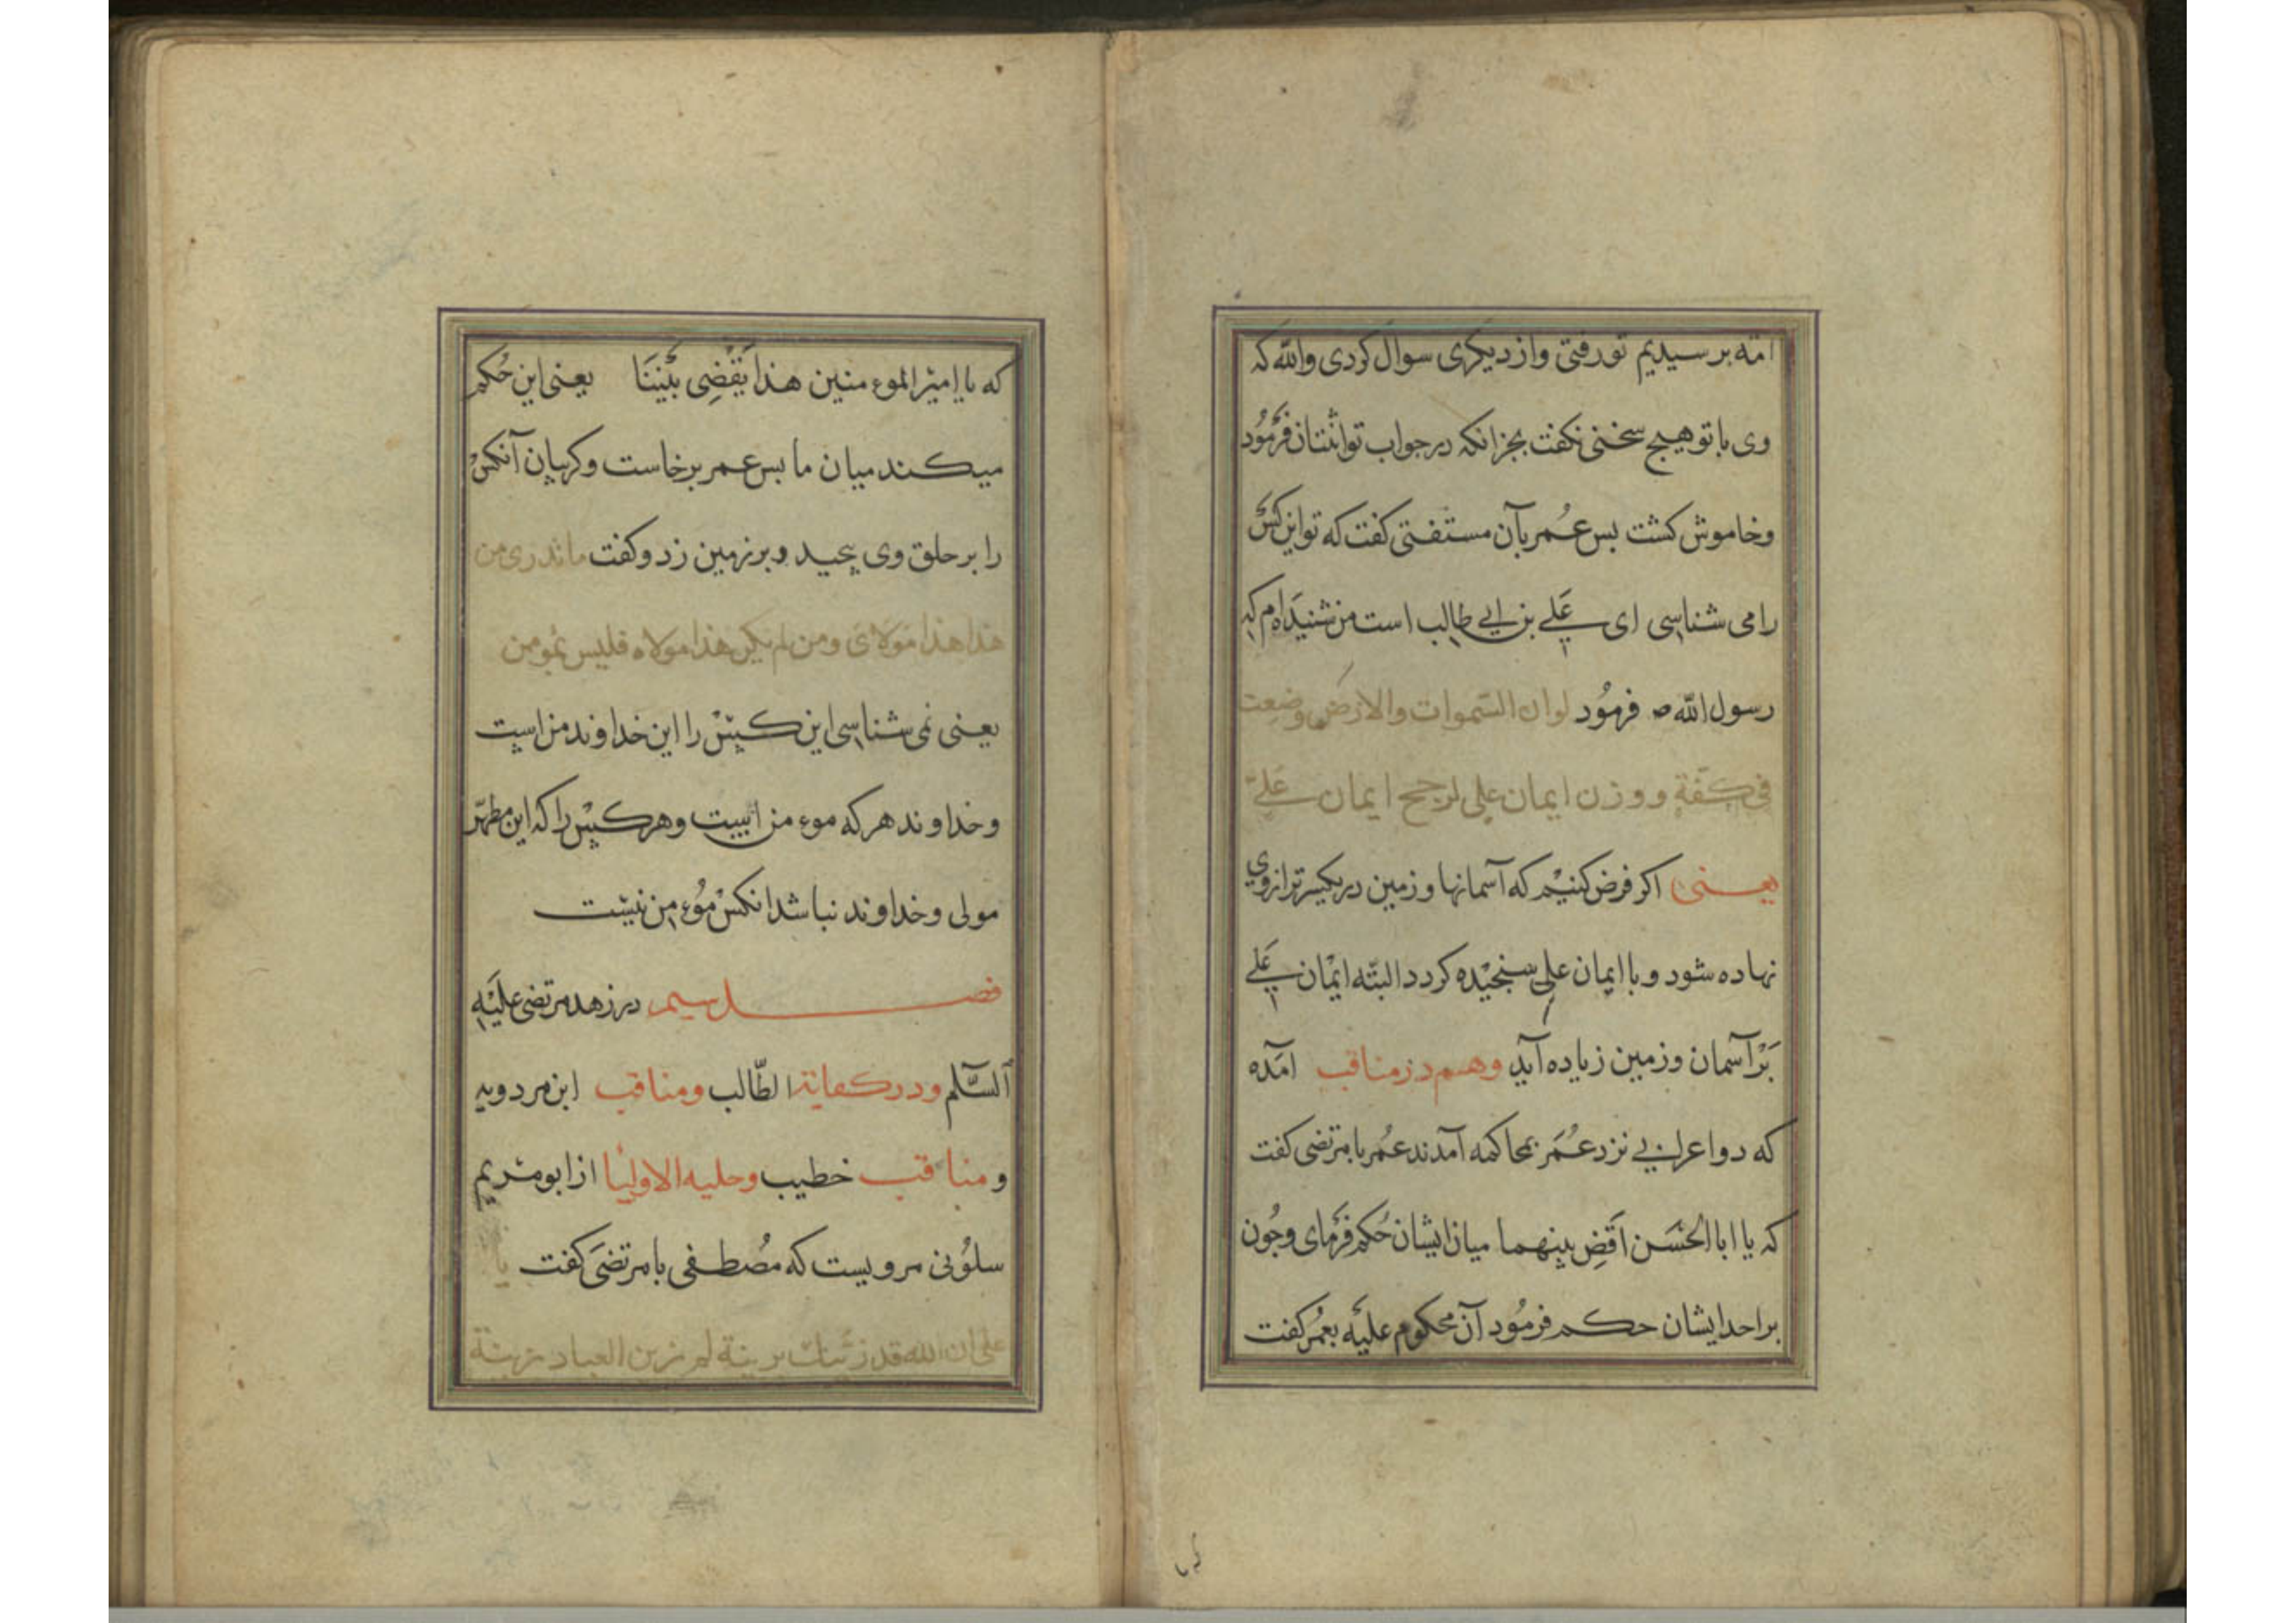 امّه برسیدیم تو رفتی واز دیکری سوال کردی والله که
وی با تو هیچ سخنی نکفت بجز انکه در جواب تو اثنتان فرمُود
وخاموش کشت بس عُمر بآن مستفتی کفت که تو این کس
را می شناسی ای علی بن ابی طالب است من شنیده ام که
رسول الله ص فرمُود لو ان السّموات والارض وضعت
فی کفّة ووزن ایمان علی لرجح ایمان علی
یعنی اکر فرض کنیم که آسمانها و زمین در یکسر ترازوی
نهاده شود و با ایمان علی سنجیده کردد البتّه ایمان علی
بَر آسمان وزمین زیاده آید وهم در مناقب امَده
که دو اعرابی نزد عُمَر بمحاکمه آمدند عمُر با مرتضی کفت
که یا ابا الحَسَن اَقضِ بینهما میان ایشان حُکم فرمای وجُون
بر احد ایشان حکم فرمُود آن محکوم علیه بعمُر کفت
که یا امیر الموءمنین هذا یَقْضِی بَیْنَنَا یعنی این حُکم
میکند میان ما بس عمر برخاست وکریبان آنکس
را بر حلق وی پیچید و بر زمین زد وکفت ما تدری من
هذا هذا مَولَایَ ومن لم یکن هذا مولاه فلیس بمُومن
یعنی نمی شناسی این کس را این خداوند من است
وخداوند هر که موءمن است وهر کس را که این مطهّر
مولی وخداوند نباشد انکس مُوءمن نیست
فصل سیم در زهد مرتضی علیَه
آلسَّلم ودر کفایة الطّالب ومناقب ابن مردویه
ومناقب خطیب وحلیه الاولیا از ابو مریم
سلُونی مرویست که مُصطفی با مرتضَی کفت یا
علی ان الله قد زیّنک بزینة لم یزین العباد بزینة